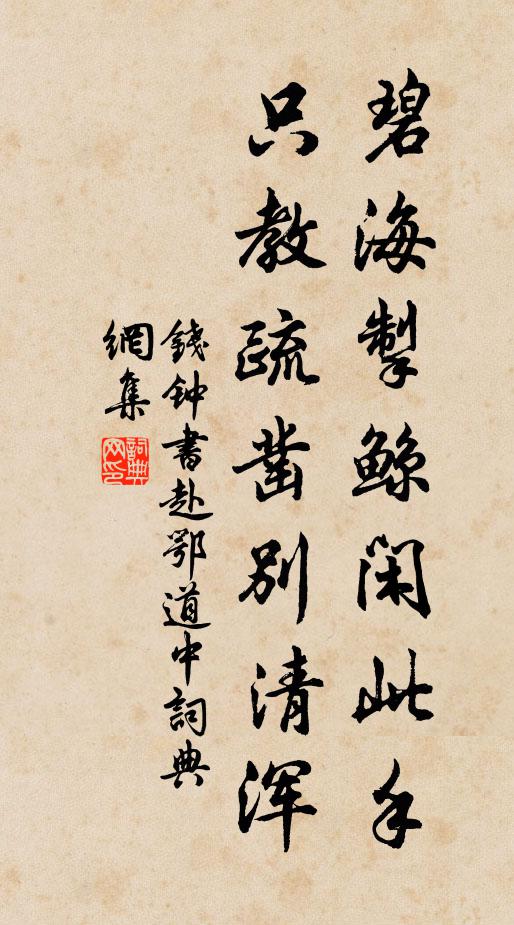 碧海掣鲸闲此手
只教疏凿别清浑
錢钟書赴鄂道中詞典
網集
詞典
网印